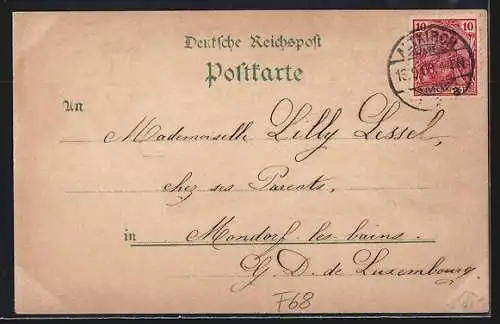 Deutsche Reichspost
Postkarte
10 10
ALTKIRCH
An
Mademoiselle Lilly Lessel,
chez ses Parents,
in Mondorf-les-bains.
G. D. de Luxembourg.
F68